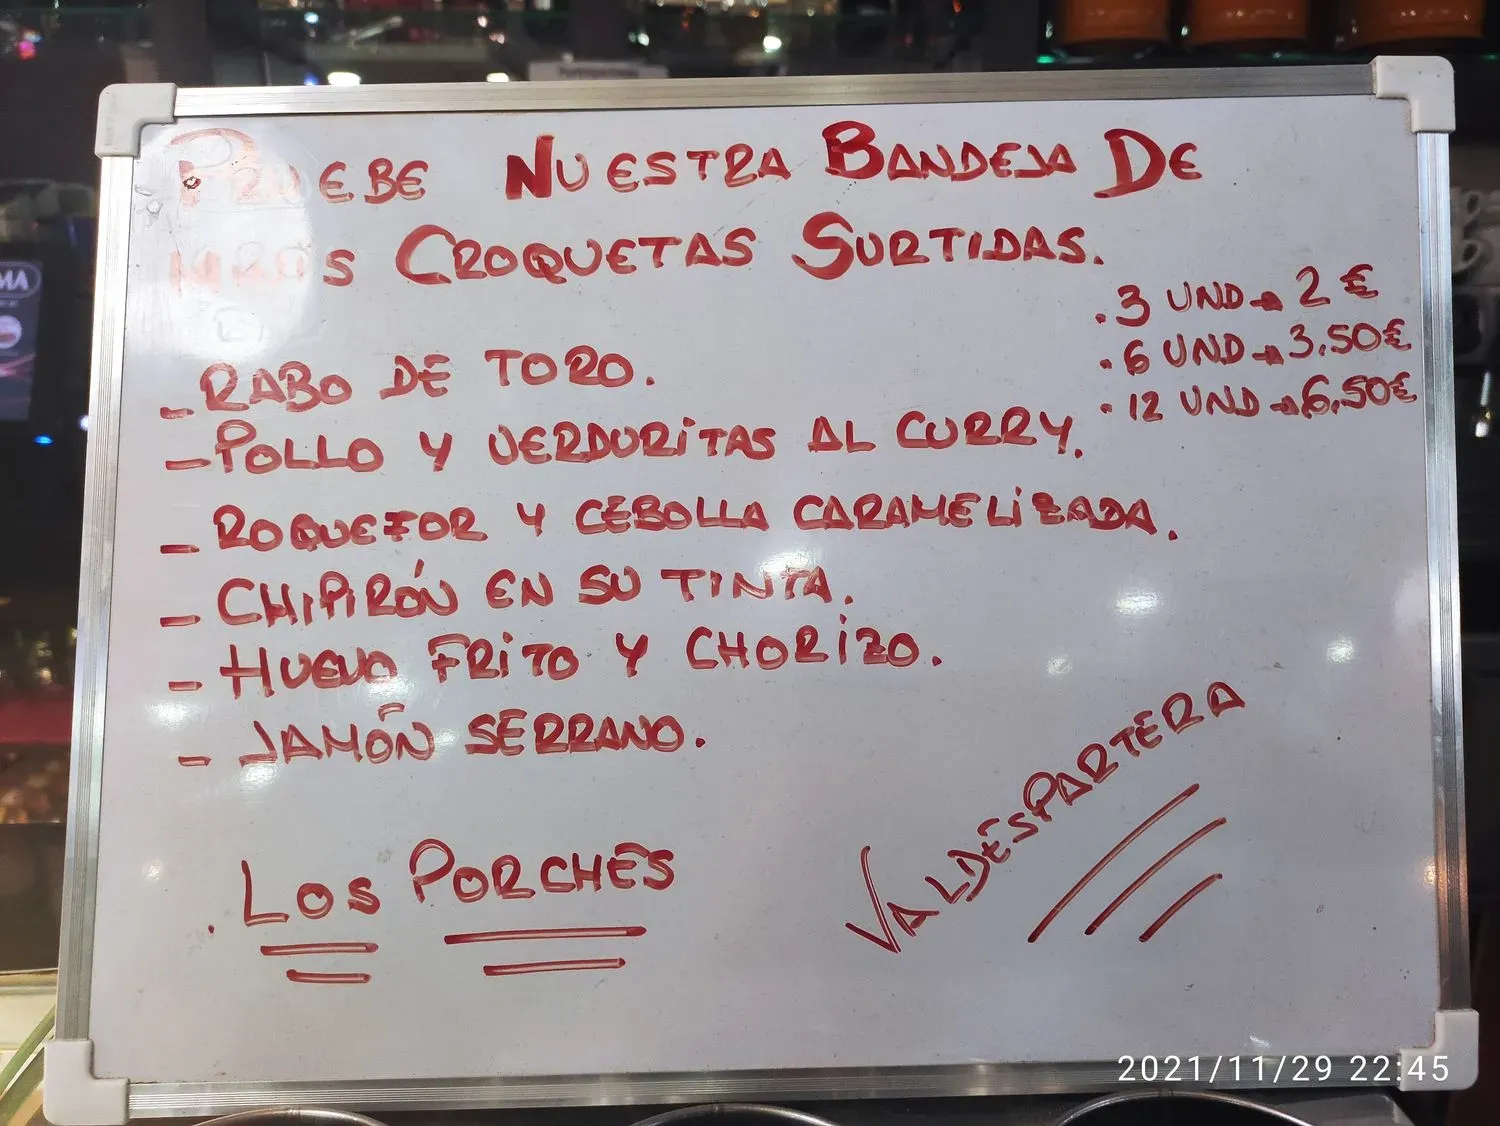 PRUEBE NUESTRA BANDEJA DE
MINIS CROQUETAS SURTIDAS.
. 3 UND→ 2 €
. 6 UND→ 3,50€
. 12 UND→ 6,50€
- RABO DE TORO.
- POLLO Y VERDURITAS AL CURRY.
- ROQUEFOR Y CEBOLLA CARAMELIZADA.
- CHIPIRÓN EN SU TINTA.
- HUEVO FRITO Y CHORIZO.
- JAMÓN SERRANO.
. LOS PORCHES
VALDESPARTERA
MA
2021/11/29 22:45